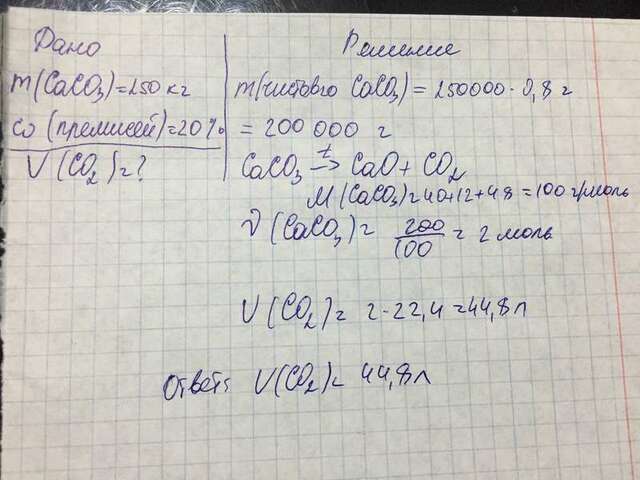 Дано
m(CaCO₃)=250кг
ω(примесей)=20%
V(CO₂)=?
Решение
m(чистого CaCO₃)=250000·0,8=
=200000г
CaCO₃ t→ CaO+CO₂
M(CaCO₃)=40+12+48=100г/моль
ν(CaCO₃)=200/100=2моль
V(CO₂)=2·22,4=44,8л
Ответ: V(CO₂)=44,8л